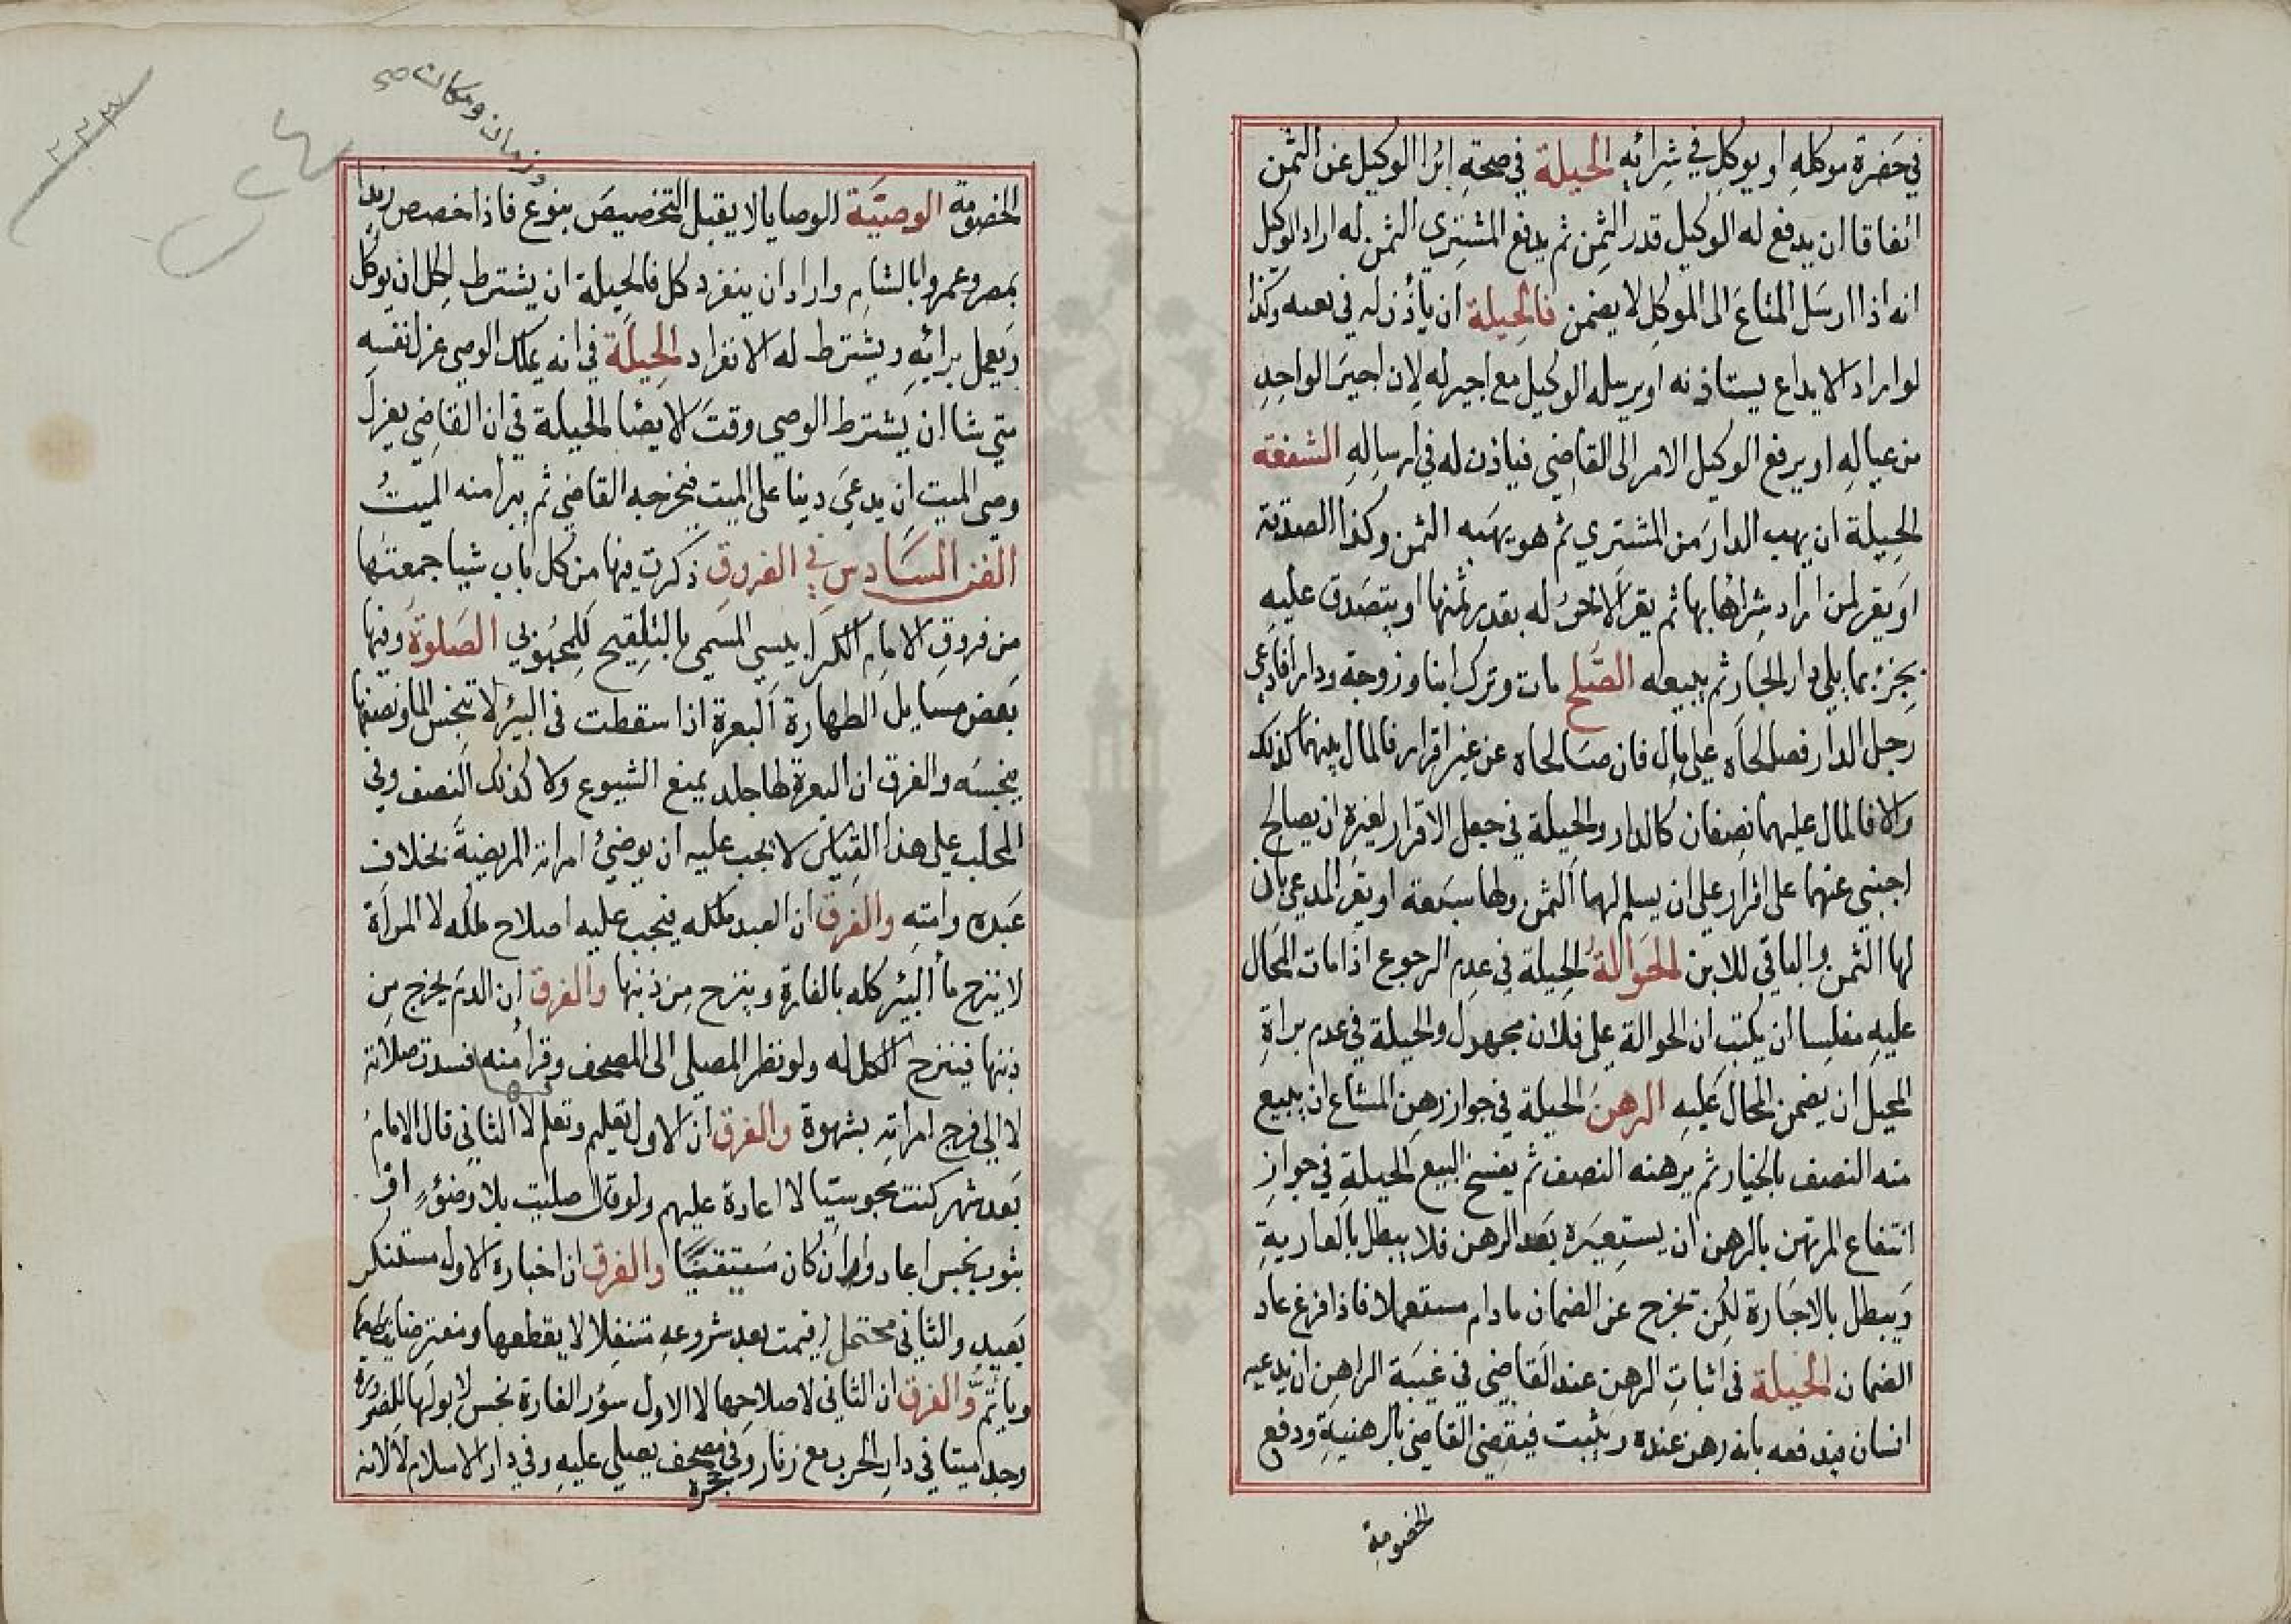 في حضرة موكله او يوكل في شرائه الحيلة في صحة ابرا الوكيل عن الثمن
اتفاقا ان يدفع له الوكيل قدر الثمن ثم يدفع المشتري الثمن له اراد الوكيل
انه اذا ارسل المتاع الى الموكل لا يضمن فالحيلة ان يأذن له في بعثه وكذا
لو اراد الايداع يستاذنه او يرسله الوكيل مع اجير له لان اجير الواحد
من عياله او يرفع الوكيل الامر الى القاضي فياذن له في ارساله الشفعة
الحيلة ان يهب الدار من المشتري ثم هو يهبه الثمن وكذا الصدقة
او يقر لمن اراد شراها بها ثم يقر الاخر له بقدر ثمنها او يتصدق عليه
بجزء مما يلي دار الجار ثم يبيعه الصلح مات وترك ابنا وزوجة ودارا فادعى
رجل الدار فصالحاه على مال فان صالحاه عن غير اقرار فالمال بينهما كذلك
والا فالمال عليهما نصفان كالدار والحيلة في جعل الاقرار لغيره ان يصالح
اجنبي عنهما على اقرار على ان يسلم لهما الثمن ولها سبعة او يقر المدعي بان
لها الثمن والباقي للابن الحوالة الحيلة في عدم الرجوع اذا مات المحال
عليه مفلسا ان يكتب ان الحوالة على فلان مجهول والحيلة في عدم براة
المحيل ان يضمن المحال عليه الرهن الحيلة في جواز رهن المشاع ان يبيع
منه النصف بالخيار ثم يرهنه النصف ثم يفسخ البيع الحيلة في جواز
انتفاع المرتهن بالرهن ان يستعيره بعد الرهن فلا يبطل بالعارية
ويبطل بالاجارة لكن يخرج عن الضمان ما دام مستعملا فاذا فرغ عاد
الضمان الحيلة في اثبات الرهن عند القاضي في غيبة الراهن ان يدعيه
انسان فيدفعه بانه رهن عنده ويثبت فيقضي القاضي بالرهنية ودفع
الخصومة
وزمان ومكان صح
٢٣٣
الخصومة الوصية الوصايا لا يقبل التخصيص بنوع فاذا خصص زيدا
بمصر وعمروا بالشام واراد ان ينفرد كل فالحيلة ان يشترط لكل ان يوكل
ويعمل برائه ويشترط له الانفراد الحيلة في انه يملك الوصي عزل نفسه
متي شا ان يشترط الوصي وقت الايصا الحيلة في ان القاضي يعزل
وصي الميت ان يدعي دينا على الميت فيخرجه القاضي ثم يبرا منه الميت
الفن السادس في الفروق ذكرت فيها من كل باب شيا جمعتها
من فروق الامام الكرابيسي المسمى بالتلقيح للمحبوبي الصلوة وفيها
بعض مسايل الطهارة البعرة اذا سقطت في البير لا تنجس الما ونصفها
ينجسه والفرق ان البعرة لها جلد يمنع الشيوع ولا كذلك النصف وفي
المحلب على هذا القياس لا يجب عليه ان يوضئ امراته المريضة بخلاف
عبده وامته والفرق ان العبد ملكه فيجب عليه اصلاح ملكه لا المراة
لا ينزح ما البير كله بالفارة وينزح من ذنبها والفرق ان الدم يخرج من
ذنبها فينزح الكل له ولو نظر المصلي الى المصحف وقرا منه فسدت صلاته
لا الي فرج امراته بشهوة والفرق ان الاول تعليم وتعلم لا الثاني قال الامام
بعد شهر كنت مجوسيا لا اعادة عليهم ولو قال صليت بلا وضوء او
بثوب نجس اعادوا ان كان متيقنا والفرق ان اخباره الاول مستنكر
بعيد والثاني محتمل اقيمت بعد شروعه متنفلا لا يقطعها ومفترضا يقطعها
وياتم والفرق ان الثاني لاصلاحها لا الاول سؤر الفارة نجس لا بولها للضرورة
وجد ميتا في دار الحرب مع زنار وفي حجره مصحف يصلي عليه وفي دار الاسلام لا لانه